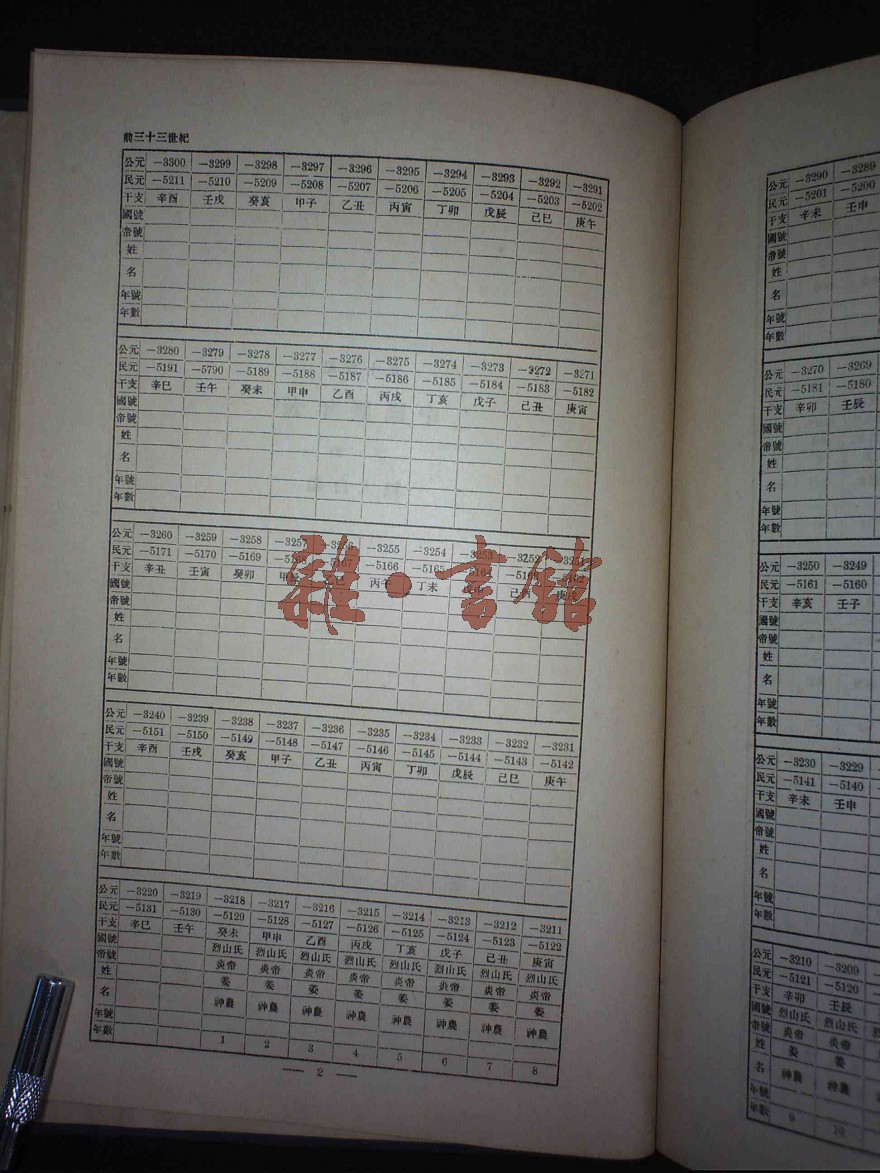 前三十三世紀
公元 —3300 —3299 —3298 —3297 —3296 —3295 —3294 —3293 —3292 —3291
民元 —5211 —5210 —5209 —5208 —5207 —5206 —5205 —5204 —5203 —5202
干支 辛酉 壬戌 癸亥 甲子 乙丑 丙寅 丁卯 戊辰 己巳 庚午
國號
帝號
姓
名
年號
年數
公元 —3280 —3279 —3278 —3277 —3276 —3275 —3274 —3273 —3272 —3271
民元 —5191 —5790 —5189 —5188 —5187 —5186 —5185 —5184 —5183 —5182
干支 辛巳 壬午 癸未 甲申 乙酉 丙戌 丁亥 戊子 己丑 庚寅
國號
帝號
姓
名
年號
年數
公元 —3260 —3259 —3258 —3257 —3256 —3255 —3254 —3253 —3252 —3251
民元 —5171 —5170 —5169 —5167 —5166 —5165 —5164
干支 辛丑 壬寅 癸卯 甲辰 丙午 丁未
國號
帝號
姓
名
年號
年數
雜·書館
公元 —3240 —3239 —3238 —3237 —3236 —3235 —3234 —3233 —3232 —3231
民元 —5151 —5150 —5149 —5148 —5147 —5146 —5145 —5144 —5143 —5142
干支 辛酉 壬戌 癸亥 甲子 乙丑 丙寅 丁卯 戊辰 己巳 庚午
國號
帝號
姓
名
年號
年數
公元 —3220 —3219 —3218 —3217 —3216 —3215 —3214 —3213 —3212 —3211
民元 —5131 —5130 —5129 —5128 —5127 —5126 —5125 —5124 —5123 —5122
干支 辛巳 壬午 癸未 甲申 乙酉 丙戌 丁亥 戊子 己丑 庚寅
國號 烈山氏 烈山氏 烈山氏 烈山氏 烈山氏 烈山氏 烈山氏 烈山氏
帝號 炎帝 炎帝 炎帝 炎帝 炎帝 炎帝 炎帝 炎帝
姓 姜 姜 姜 姜 姜 姜 姜 姜
名 神農 神農 神農 神農 神農 神農 神農 神農
年號
年數 1 2 3 4 5 6 7 8
— 2 —
公元 —3290 —3289
民元 —5201 —5200
干支 辛未 壬申
國號
帝號
姓
名
年號
年數
公元 —3270 —3269
民元 —5181 —5180
干支 辛卯 壬辰
國號
帝號
姓
名
年號
年數
公元 —3250 —3249
民元 —5161 —5160
干支 辛亥 壬子
國號
帝號
姓
名
年號
年數
公元 —3230 —3229
民元 —5141 —5140
干支 辛未 壬申
國號
帝號
姓
名
年號
年數
公元 —3210 —3209
民元 —5121 —5120
干支 辛卯 壬辰
國號 烈山氏 烈山氏
帝號 炎帝 炎帝
姓 姜 姜
名 神農 神農
年號
年數 9 10